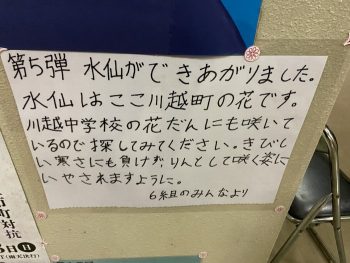 第5弾 水仙ができあがりました。
水仙はここ川越町の花です。
川越中学校の花だんにも咲いて
いるので探してみてください。きびし
い寒さにも負けず、りんとして咲く姿に
いやされますように。
6組のみんなより
町
対抗